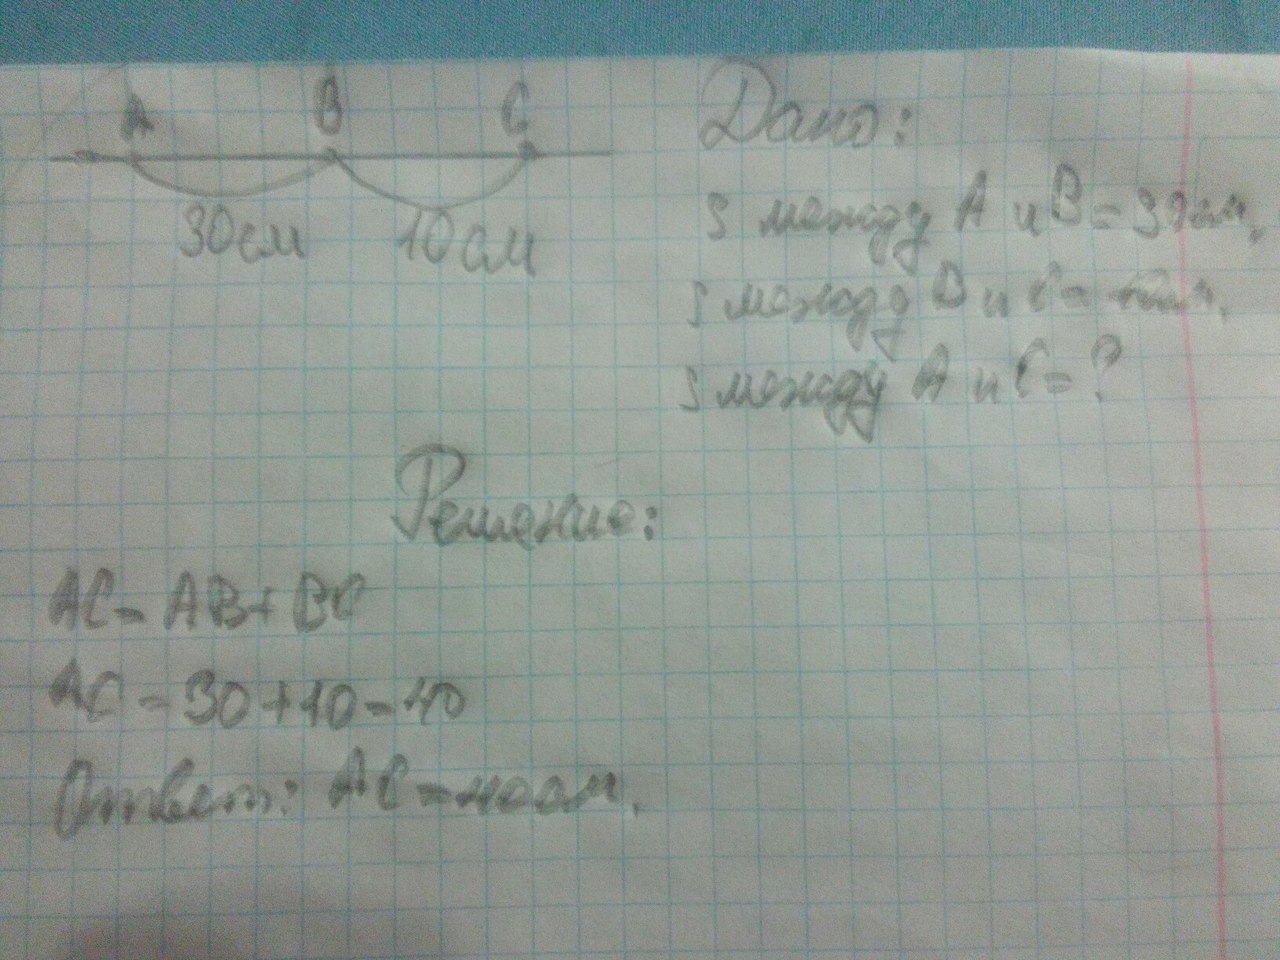 A B C
30см 10см
Дано:
S между A и B = 30см,
S между B и C = 10см,
S между A и C = ?
Решение:
AC = AB + BC
AC = 30 + 10 = 40
Ответ: AC = 40см.